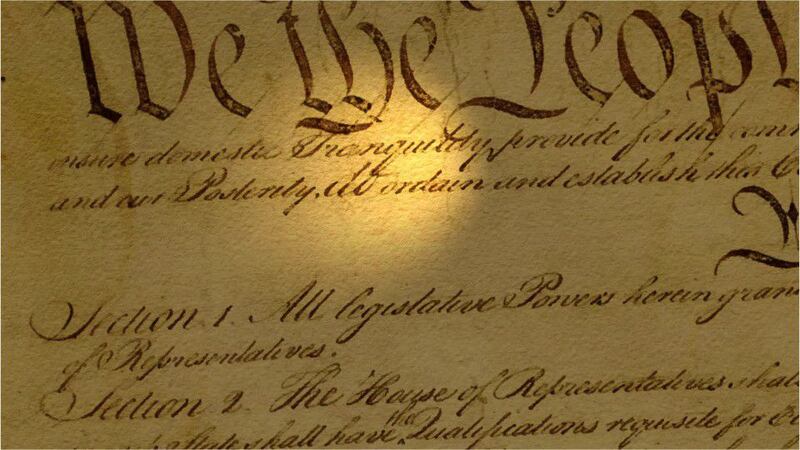 We the Peopl
insure domestic Tranquility, provide for the com
and our Posterity, do ordain and establish this C
Section 1. All legislative Powers herein gran
of Representatives.
Section 2. The House of Representatives shal
State shall have the Qualifications requisite for E